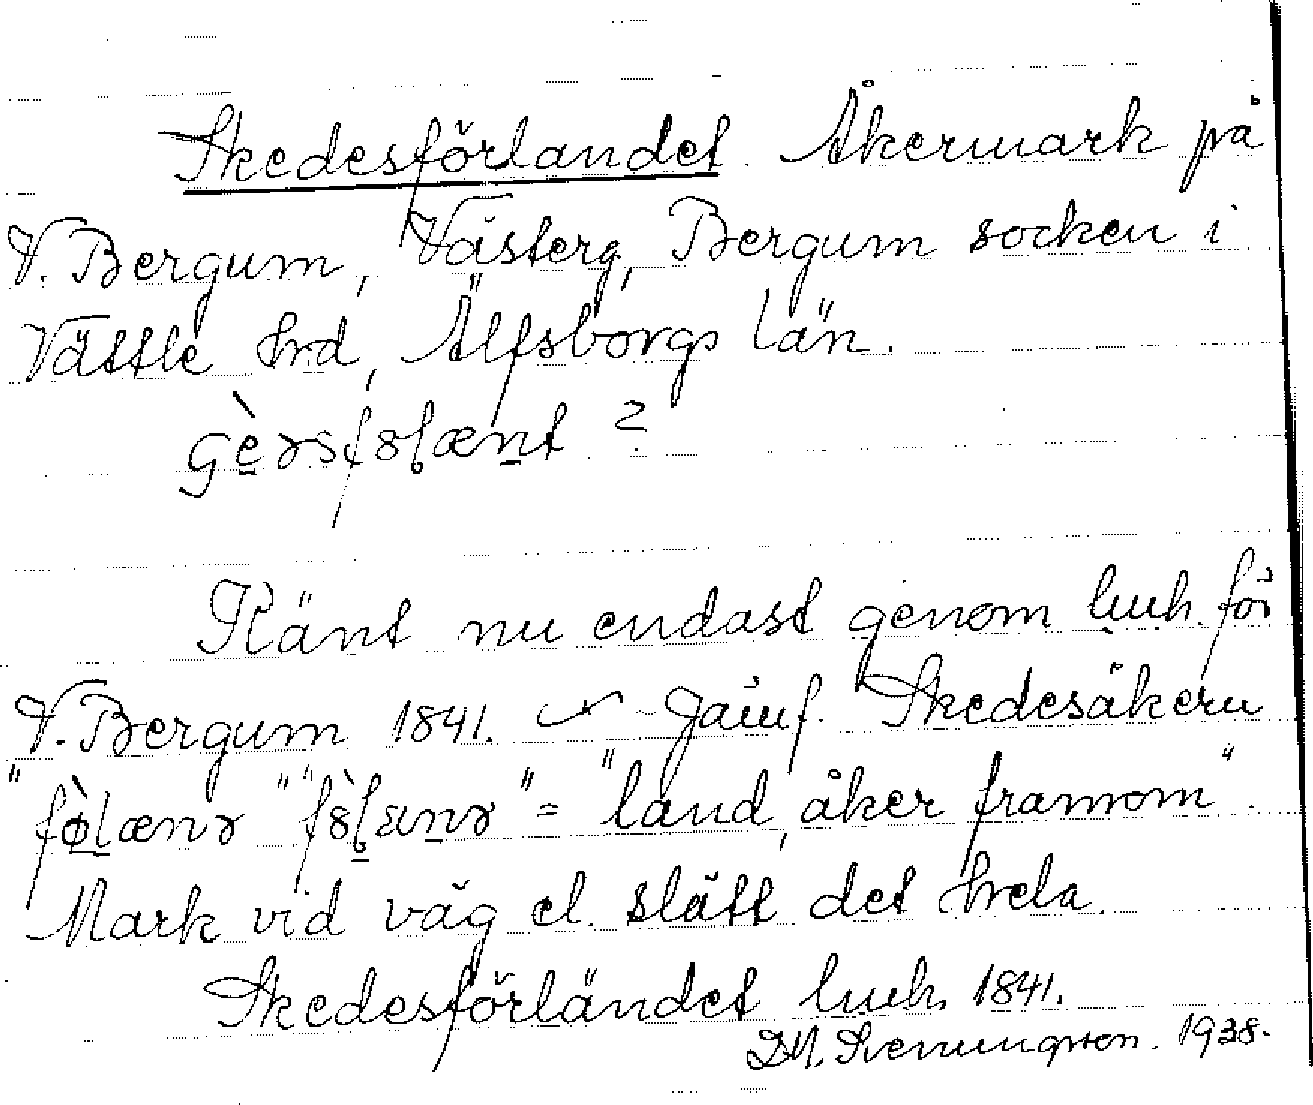 Skedesförlandet. Åkermark på
V. Bergum, Västerg, Bergum socken i
Vättle hrd, Älfsborgs län.
?
Känt nu endast genom luuh. för
V. Bergum 1841. Jämf. Skedesåkern
" " = "land, åker framom".
Mark vid väg el. slätt det hela.
Skedesförländet luuh. 1841.
1938.